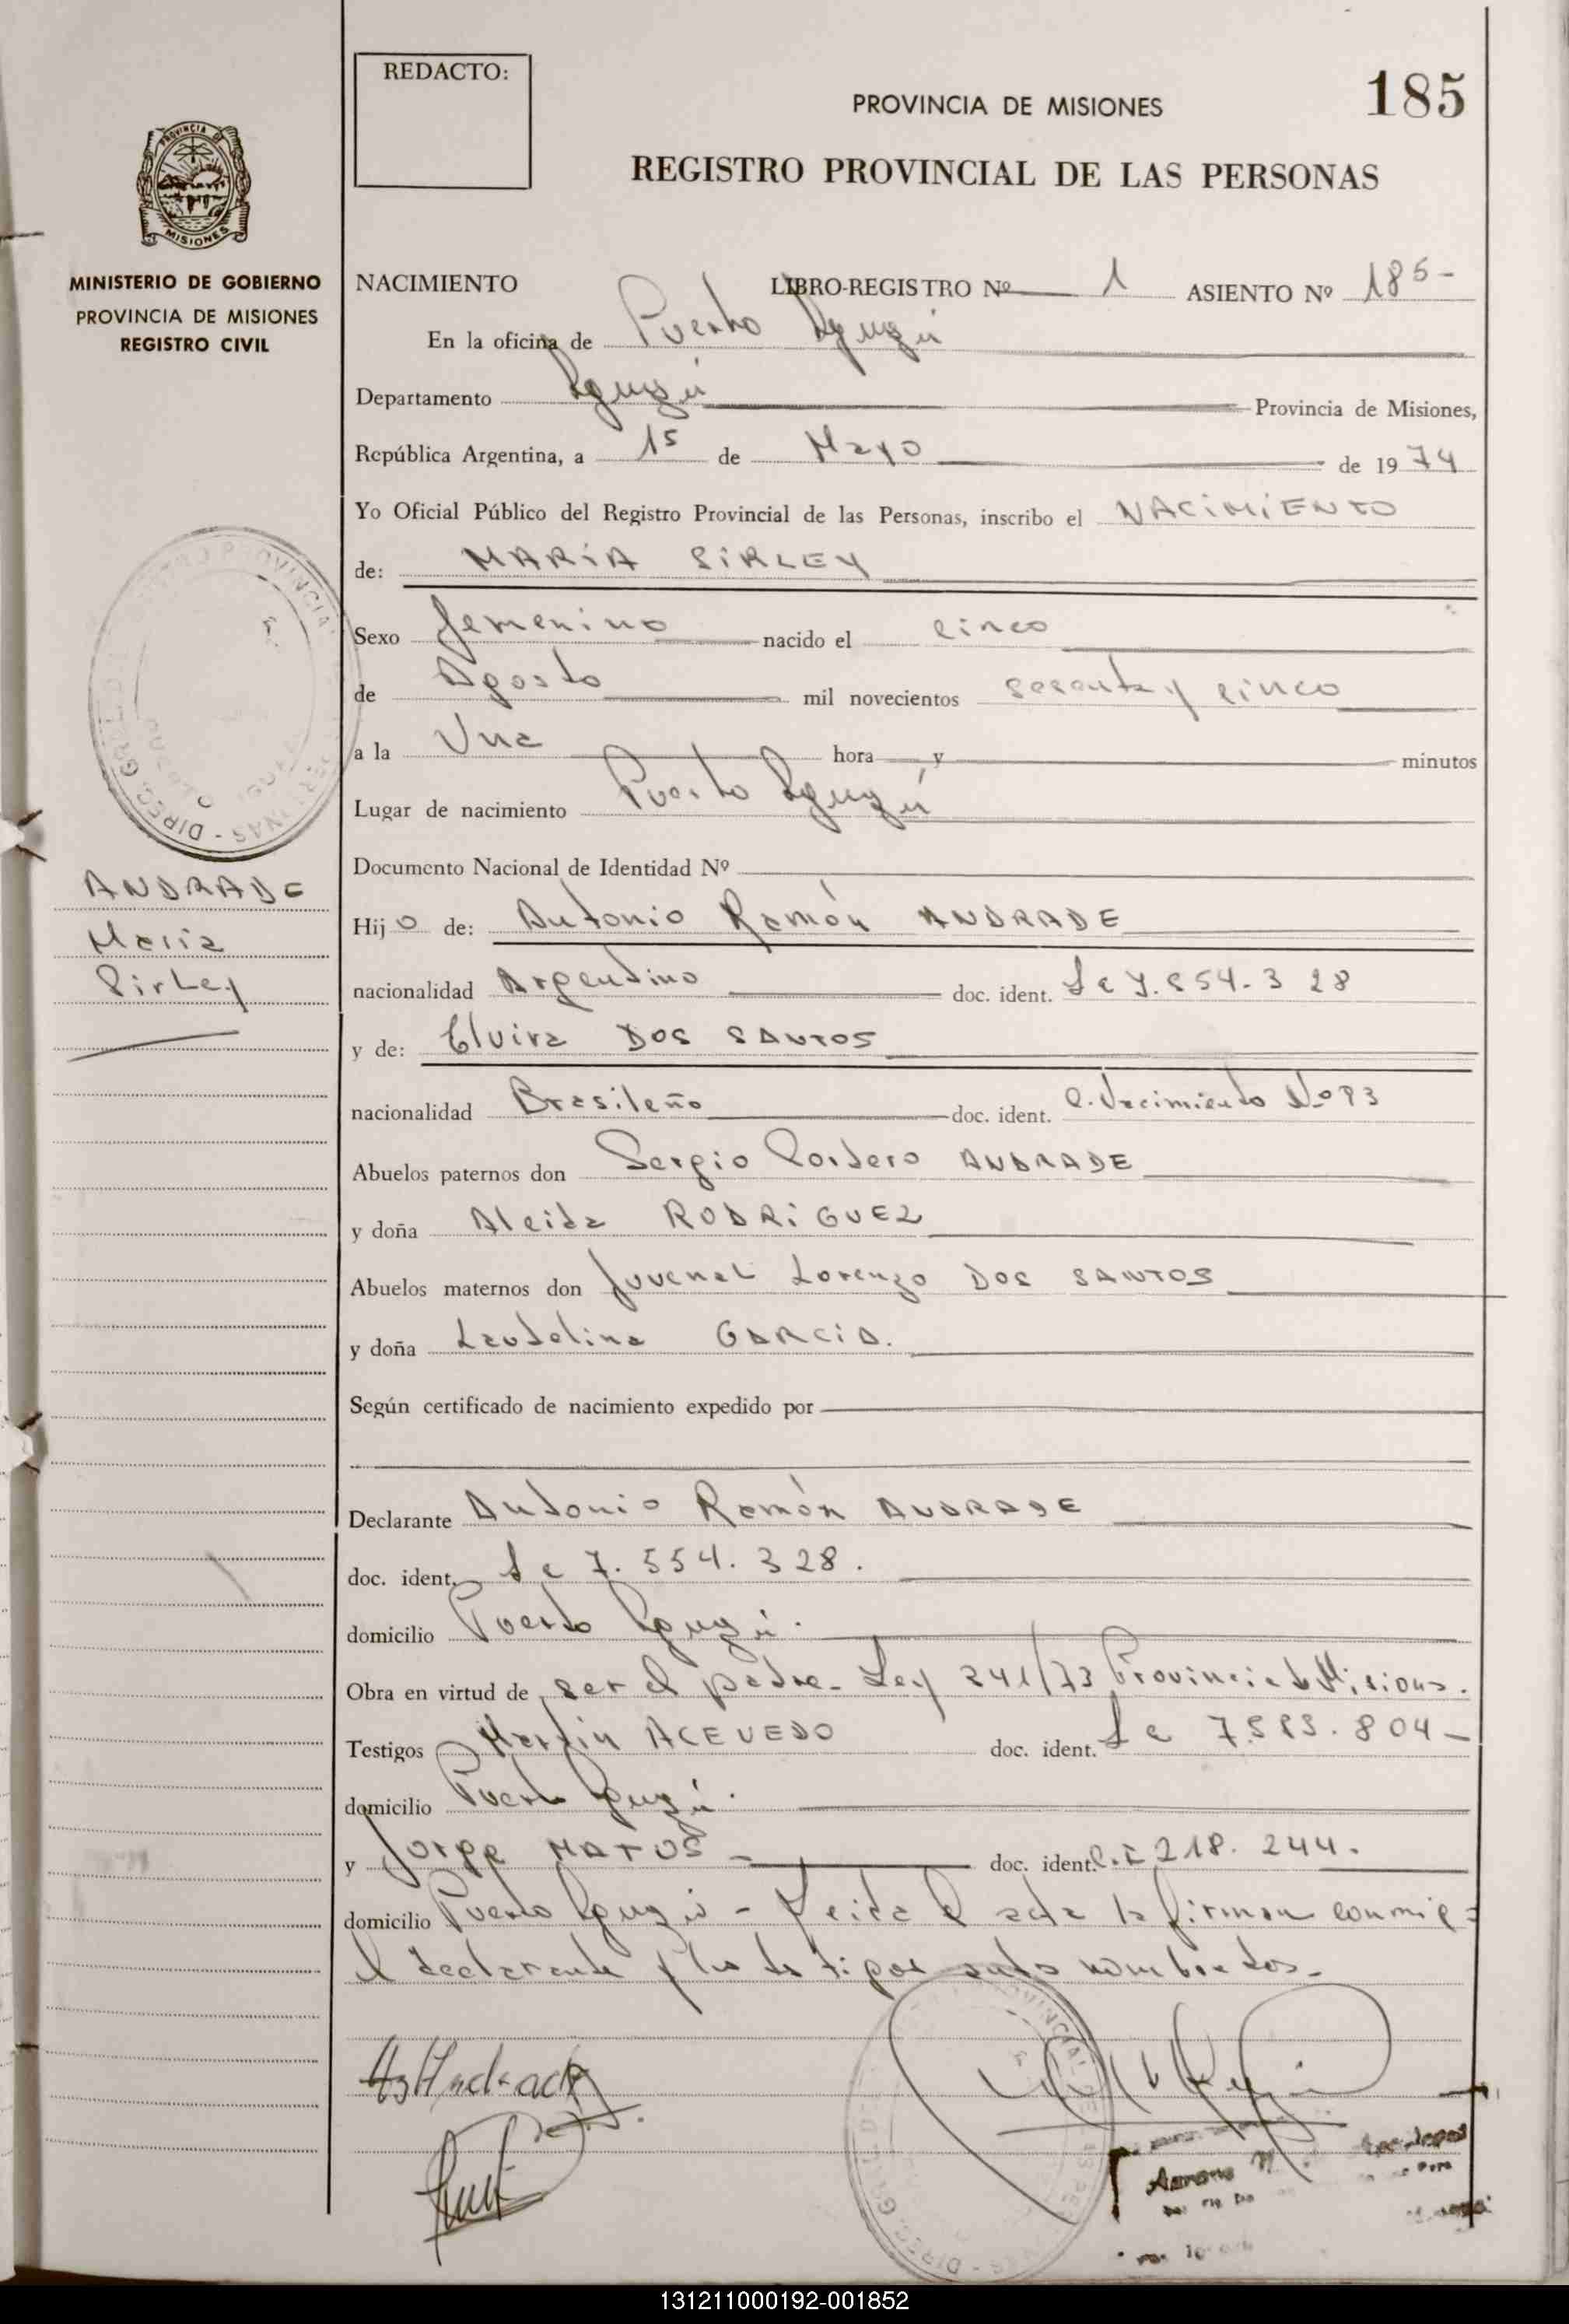 REDACTO:
185
PROVINCIA DE MISIONES
REGISTRO PROVINCIAL DE LAS PERSONAS
MISIONES
MINISTERIO DE GOBIERNO
PROVINCIA DE MISIONES
REGISTRO CIVIL
NACIMIENTO LIBRO-REGISTRO Nº 1 ASIENTO Nº 185-
En la oficina de Puerto Iguazú
Departamento Iguazú Provincia de Misiones,
República Argentina, a 15 de Mayo de 1974
Yo Oficial Público del Registro Provincial de las Personas, inscribo el NACIMIENTO
de: MARIA SIRLEY
Sexo femenino nacido el cinco
de Agosto mil novecientos sesenta y cinco
a la Una hora y minutos
Lugar de nacimiento Puerto Iguazú
Documento Nacional de Identidad Nº
ANDRADE
Maria
Sirley
Hijo de: Antonio Ramón ANDRADE
nacionalidad Argentino doc. ident. Le 7.554.328
y de: Elvira DOS SANTOS
nacionalidad Brasileño doc. ident. C. Nacimiento Nº 93
Abuelos paternos don Sergio Cordero ANDRADE
y doña Alcida RODRIGUEZ
Abuelos maternos don Juvenal Lorenzo DOS SANTOS
y doña Laudelina GARCIA.
Según certificado de nacimiento expedido por
Declarante Antonio Ramón ANDRADE
doc. ident. Le 7.554.328.
domicilio Puerto Iguazú.
Obra en virtud de ser el padre- Ley 241/73 Provincia de Misiones.
Testigos Martin ACEVEDO doc. ident. Le
domicilio Puerto Iguazú.
y Jorge MATOS - doc. ident. C.I 218.244.
domicilio Puerto Iguazú - Leida el acta la firman conmigo
el declarante y los testigos antes nombrados-
131211000192-001852